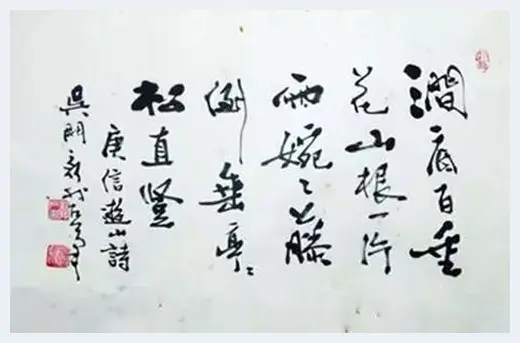 澗底百重
花山根一片
雨婉〻藤
倒垂亭〻
松直竪
庾信遊山詩
吳門